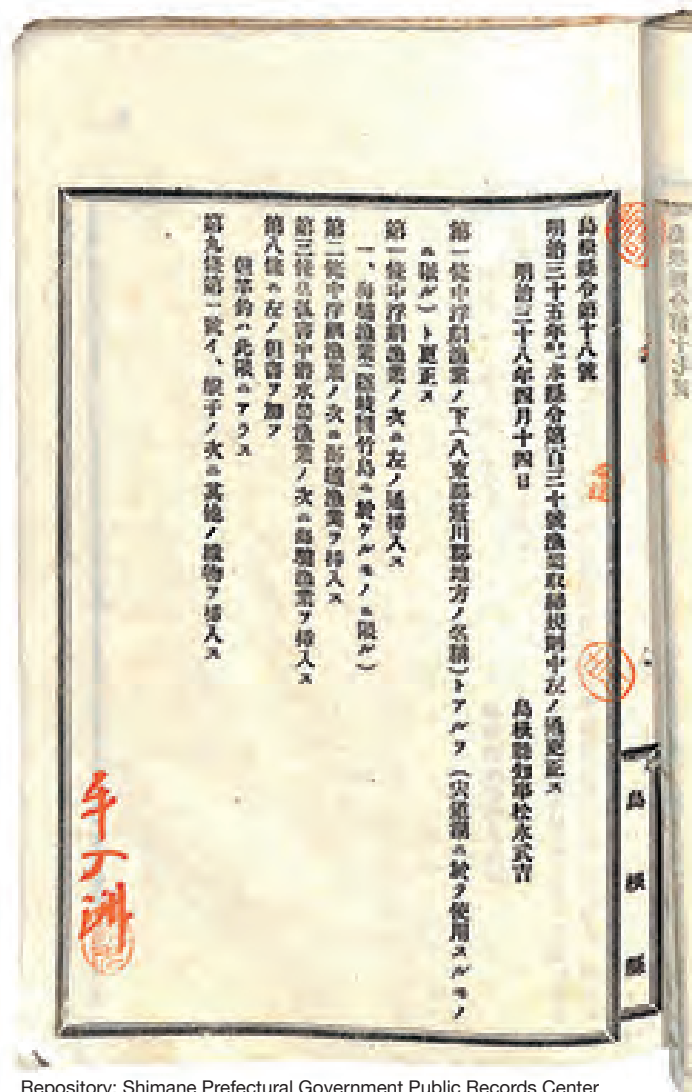 島根縣令第十八號
明治三十五年十一月本縣令第百三十號漁業取締規則中左ノ通更正ス
明治三十八年四月十四日
島根縣知事松永武吉
第一條中浮刺漁業ノ下(八束郡簸川郡地方ノ名稱)トアルヲ(宍道湖ニ於テ使用スルモノ
ニ限ル)ト更正ス
第一條中浮刺漁業ノ次ニ左ノ通挿入ス
一、海驢漁業(隱岐國竹島ニ於ケルモノニ限ル)
第二條中浮刺漁業ノ次ニ海驢漁業ヲ挿入ス
第三條 中潜水器漁業ノ次ニ海驢漁業ヲ挿入ス
第八條ニ左ノ但書ヲ加フ
但竿釣ハ此限ニアラス
第九條第一號イ、 子ノ次ニ其他ノ織物ヲ挿入ス
島根縣
Repository: Shimane Prefectural Government Public Records Center